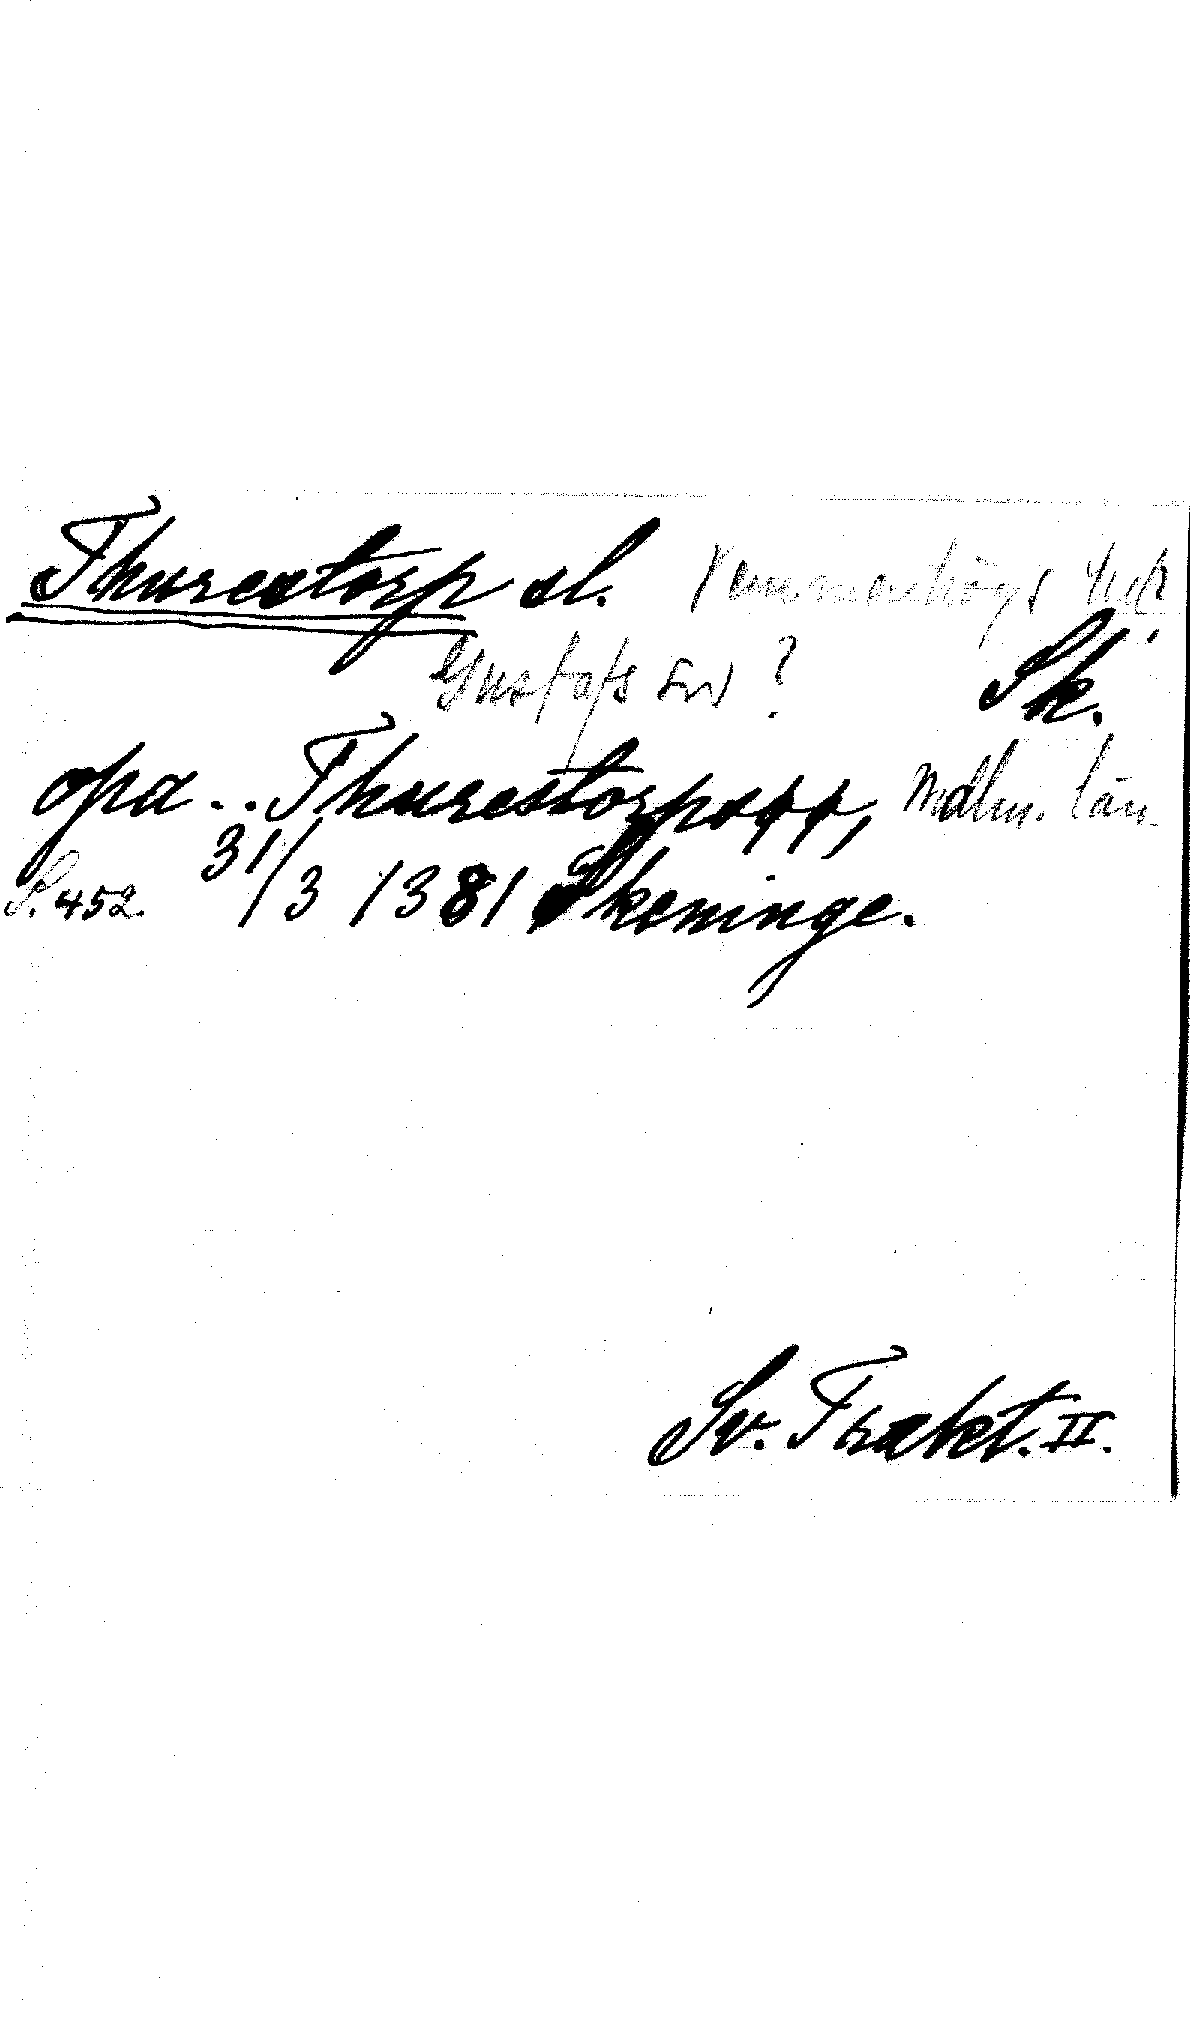 Thurestorp sl. Vemmenhögs hd.
Gustafs sn ? Sk.
opa .. Thurestorpspp, Malm. län
S. 452. 31/3 1381 Skeninge.
Sv. Trakt. II.